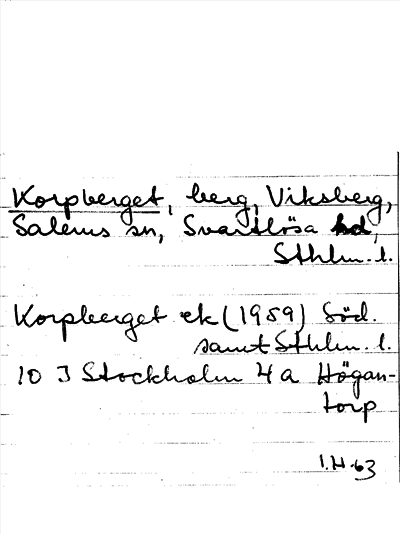 Korpberget, berg, Viksberg,
Salems sn, Svartlösa hd,
Sthlm. l.
Korpberget ek (1959) Söd.
samt Sthlm. l.
10 I Stockholm 4 a Högan-
torp
I.H.63